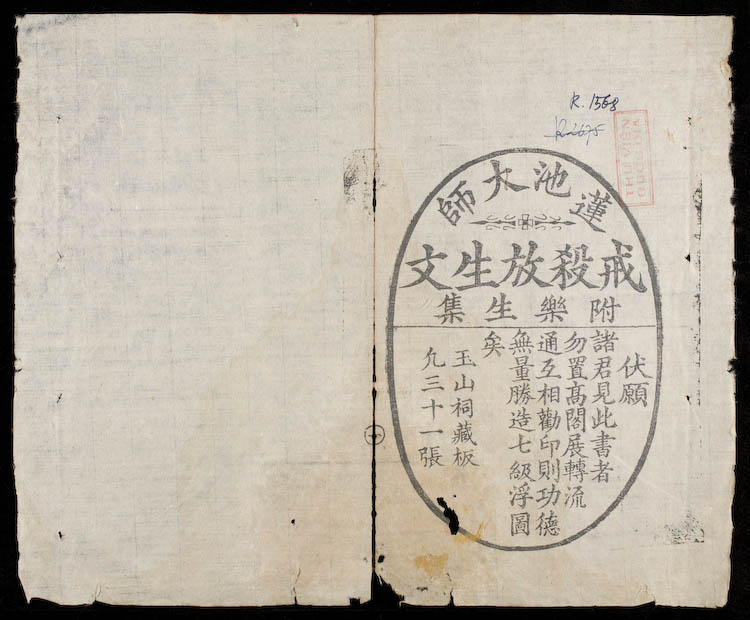 R.1568
蓮池大師
戒殺放生文
附樂生集
伏願
諸君見此書者
勿置髙閣展轉流
通互相勸印則功德
無量勝造七級浮圖
矣
玉山祠藏板
凢三十一張